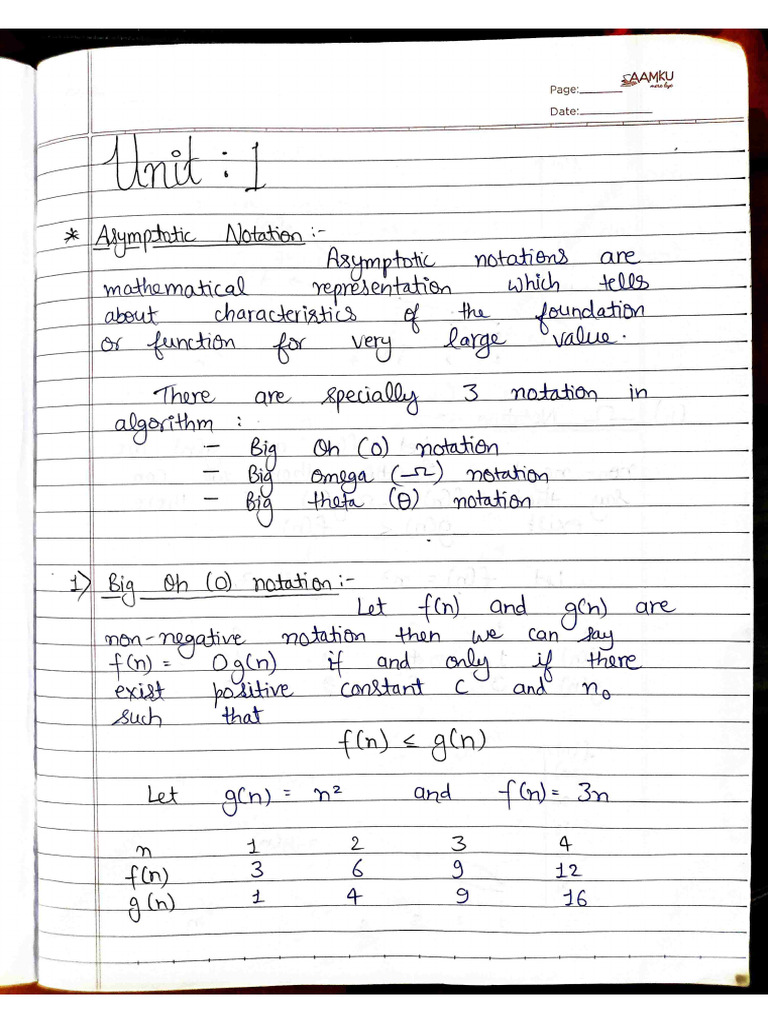 SAAMKU
more liye
Page:
Date:
Unit : 1
* Asymptotic Notation :-
Asymptotic notations are
mathematical representation which tells
about characteristics of the foundation
or function for very large value.
There are specially 3 notation in
algorithm :
- Big Oh (O) notation
- Big omega (Ω) notation
- Big theta (θ) notation
1) Big Oh (O) notation :-
Let f(n) and g(n) are
non-negative notation then we can say
f(n) = Og(n) if and only if there
exist positive constant C and n₀
such that
f(n) ≤ g(n)
Let g(n) = n² and f(n) = 3n
n 1 2 3 4
f(n) 3 6 9 12
g(n) 1 4 9 16